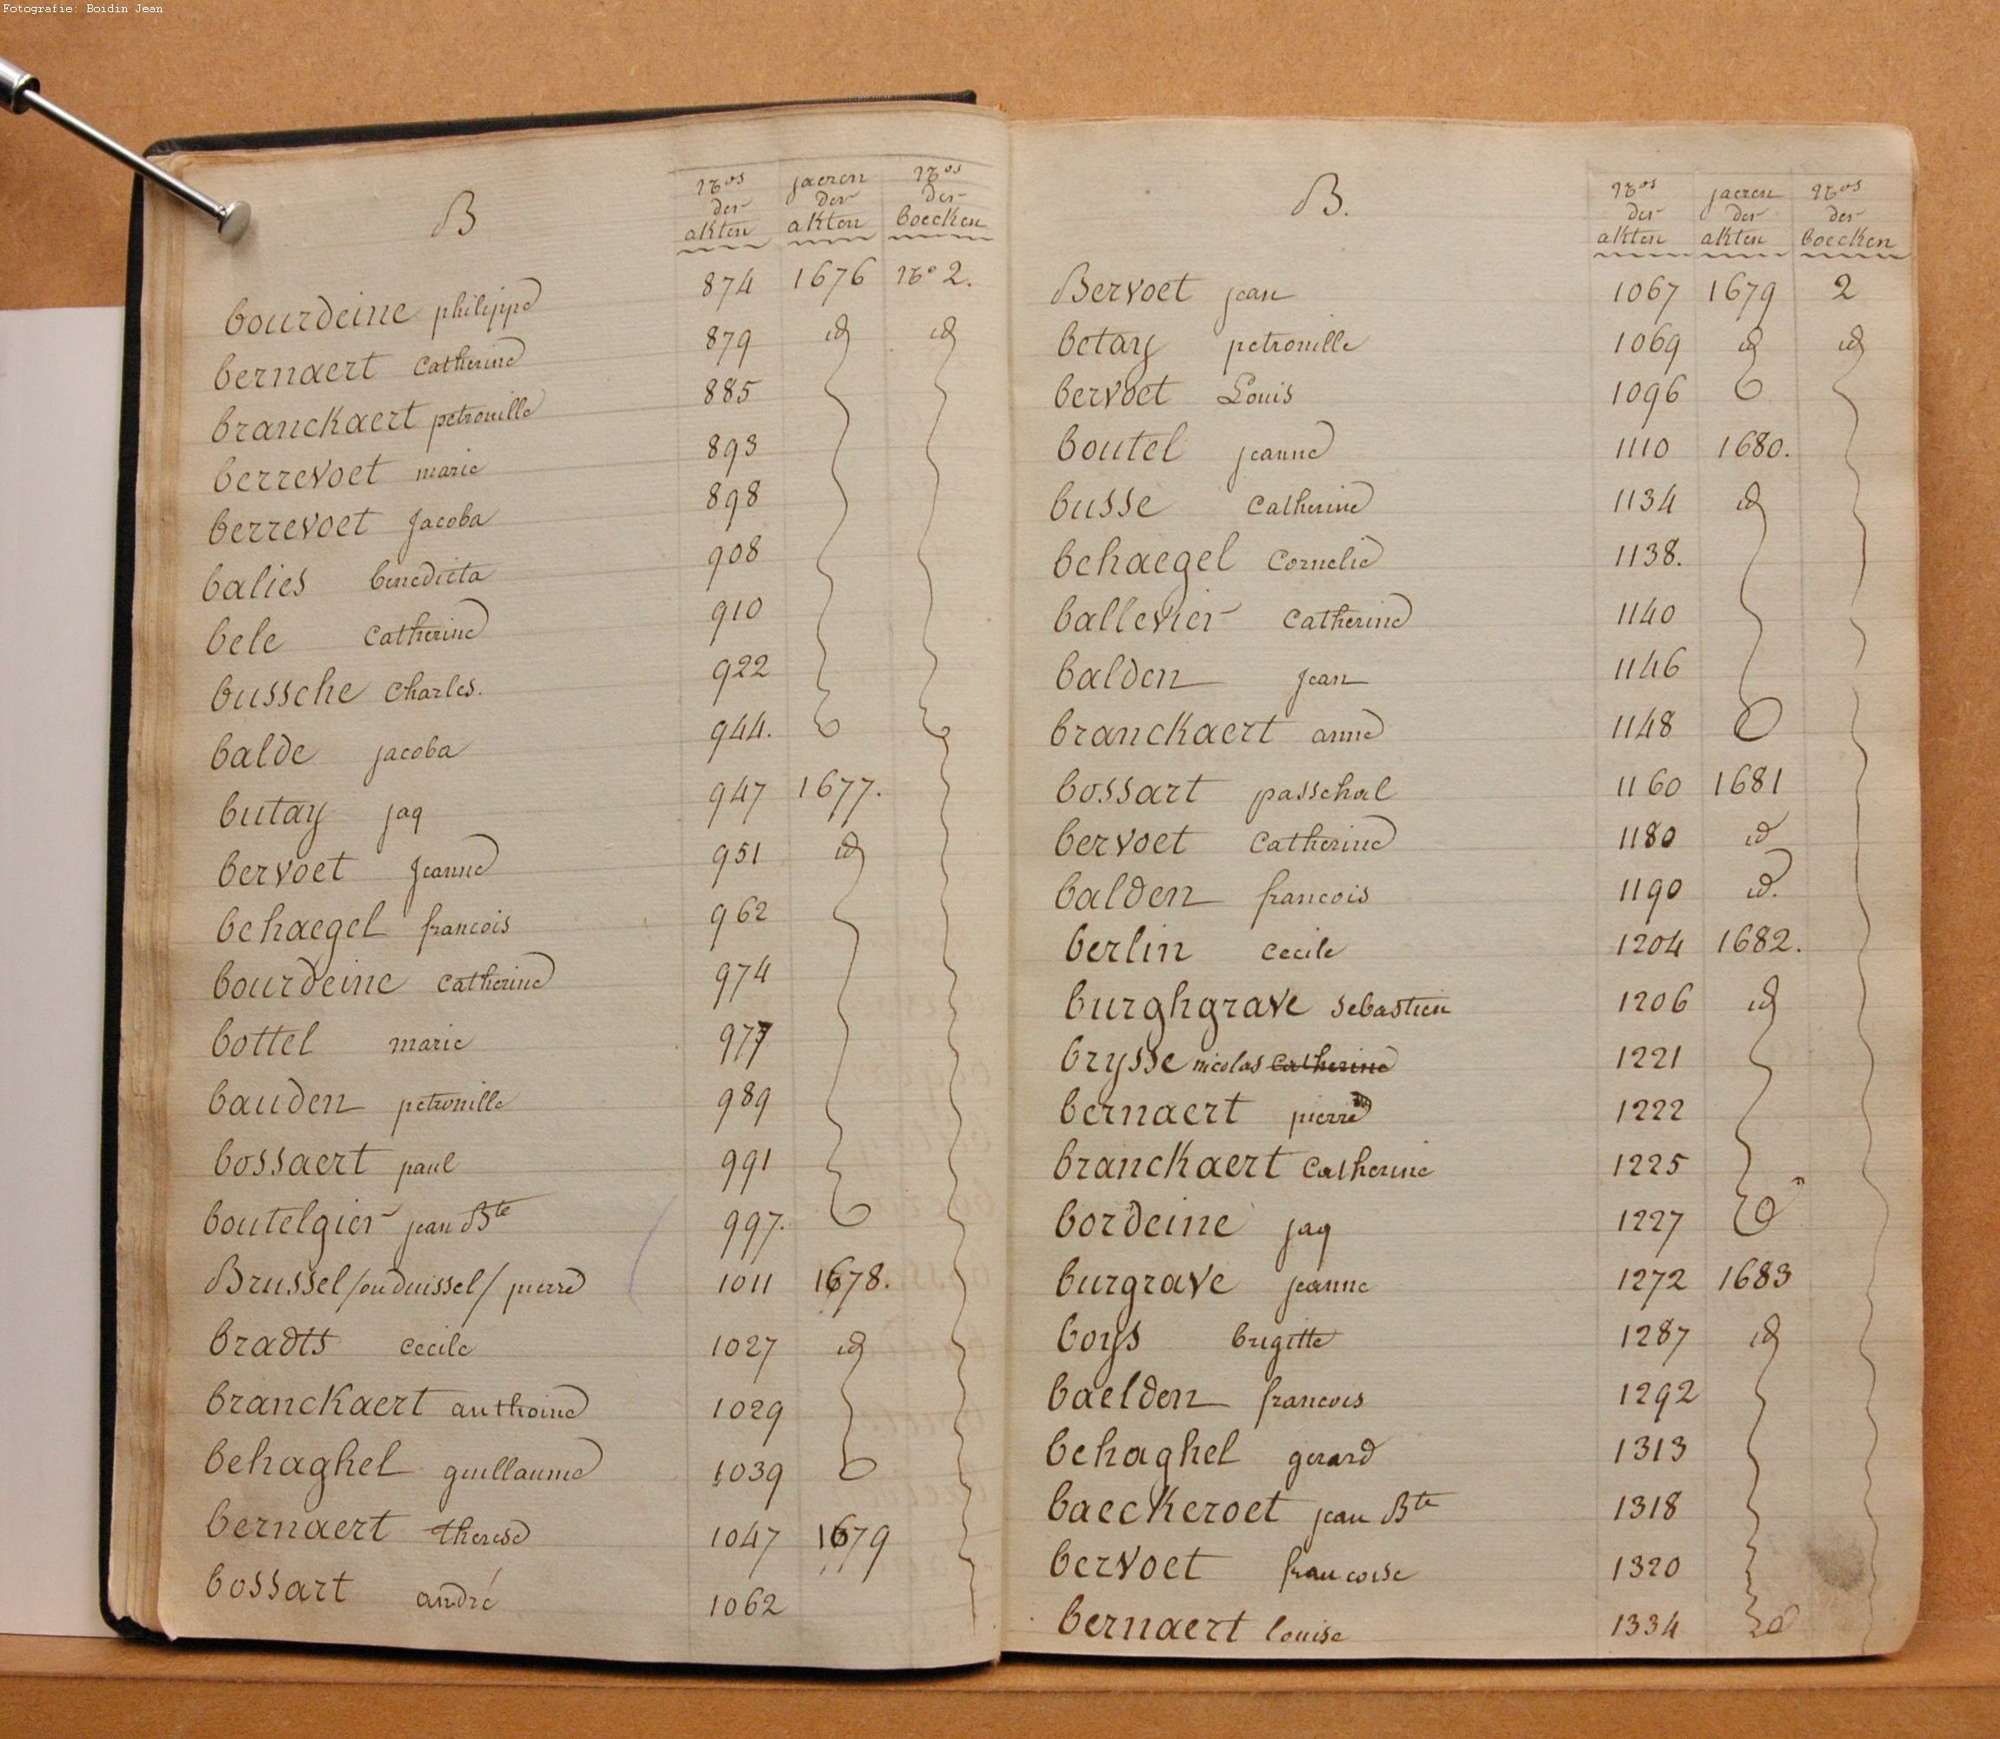 Fotografie: Boidin Jean
B
Nos der akten
jaeren der akten
Nos der boecken
bourdeine philippe 874 1676 No 2.
bernaert Catherine 879 id id
branckaert petronille 885
berrevoet marie 893
berrevoet Jacoba 898
balies benedicta 908
bele Catherine 910
bussche Charles. 922
balde jacoba 944.
butay jaq 947 1677.
bervoet Jeanne 951 id
behaegel francois 962
bourdeine Catherine 974
bottel marie 977
bauden petronille 989
bossaert paul 991
boutelgier jean Bte 997.
Brussel /ou duissel/ pierre 1011 1678.
bradts cecile 1027 id
branckaert anthoine 1029
behaghel guillaume 1039
bernaert therese 1047 1679
bossart andré 1062
B.
Nos der akten
jaeren der akten
Nos der boecken
Bervoet jean 1067 1679 2
betay petronille 1069 id id
bervoet Louis 1096
boutel jeanne 1110 1680.
busse Catherine 1134 id
behaegel Cornelie 1138.
ballevier Catherine 1140
balden jean 1146
branckaert anne 1148
bossart passchal 1160 1681
bervoet Catherine 1180 id
balden francois 1190 id.
berlin cecile 1204 1682.
burghgrave sebastien 1206 id
brysse nicolas catherine 1221
bernaert pierre 1222
branckaert Catherine 1225
bordeine jaq 1227
burgrave jeanne 1272 1683
boys brigitte 1287 id
baelden francois 1292
behaghel gerard 1313
baeckeroet jean Bte 1318
bervoet francoise 1320
bernaert louise 1334